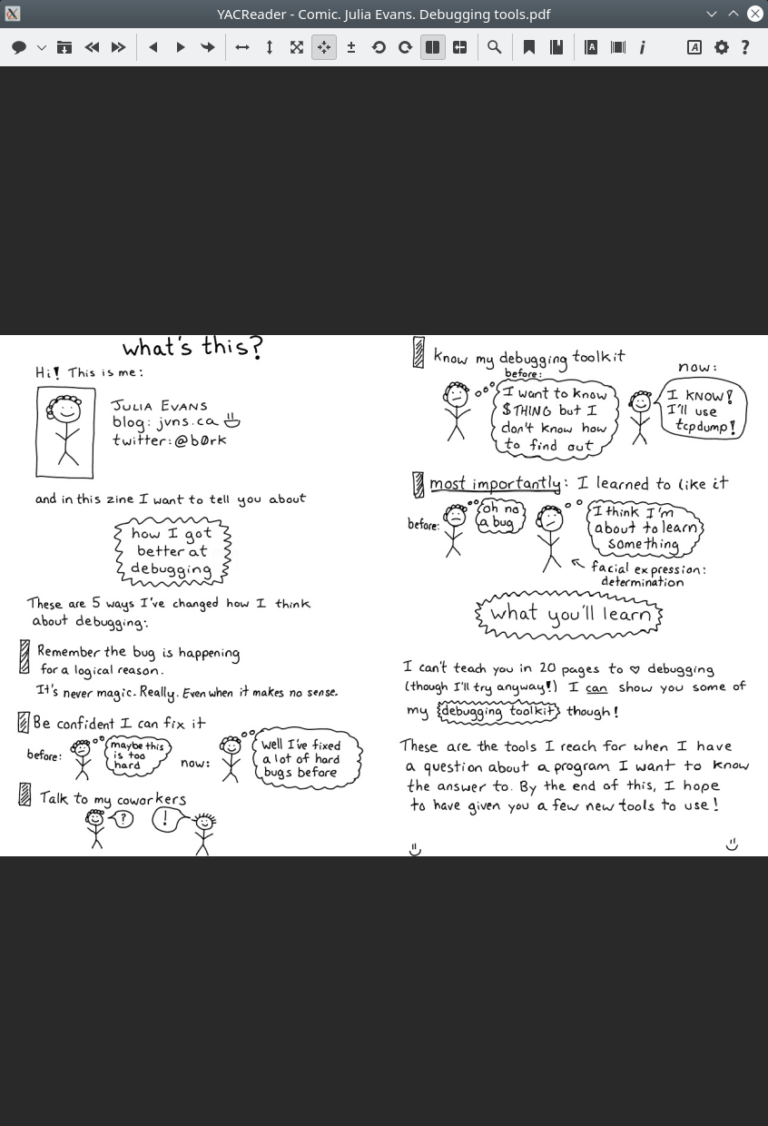 YACReader - Comic. Julia Evans. Debugging tools.pdf
what's this?
Hi! This is me:
JULIA EVANS
blog: jvns.ca
twitter: @b0rk
and in this zine I want to tell you about
how I got
better at
debugging
These are 5 ways I've changed how I think
about debugging:
Remember the bug is happening
for a logical reason.
It's never magic. Really. Even when it makes no sense.
Be confident I can fix it
before:
maybe this
is too
hard
now:
well I've fixed
a lot of hard
bugs before
Talk to my coworkers
?
!
know my debugging toolkit
before:
I want to know
$THING but I
don't know how
to find out
now:
I KNOW!
I'll use
tcpdump!
most importantly: I learned to like it
before:
oh no
a bug
I think I'm
about to learn
something
facial expression:
determination
what you'll learn
I can't teach you in 20 pages to ♡ debugging
(though I'll try anyway!) I can show you some of
my debugging toolkit though!
These are the tools I reach for when I have
a question about a program I want to know
the answer to. By the end of this, I hope
to have given you a few new tools to use!